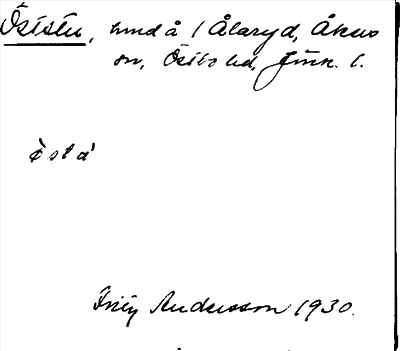 Östsin, hmd å i Ålaryd, Åkers
sn, Östbo hd, Jönk. l.
östå
Andersson 1930.